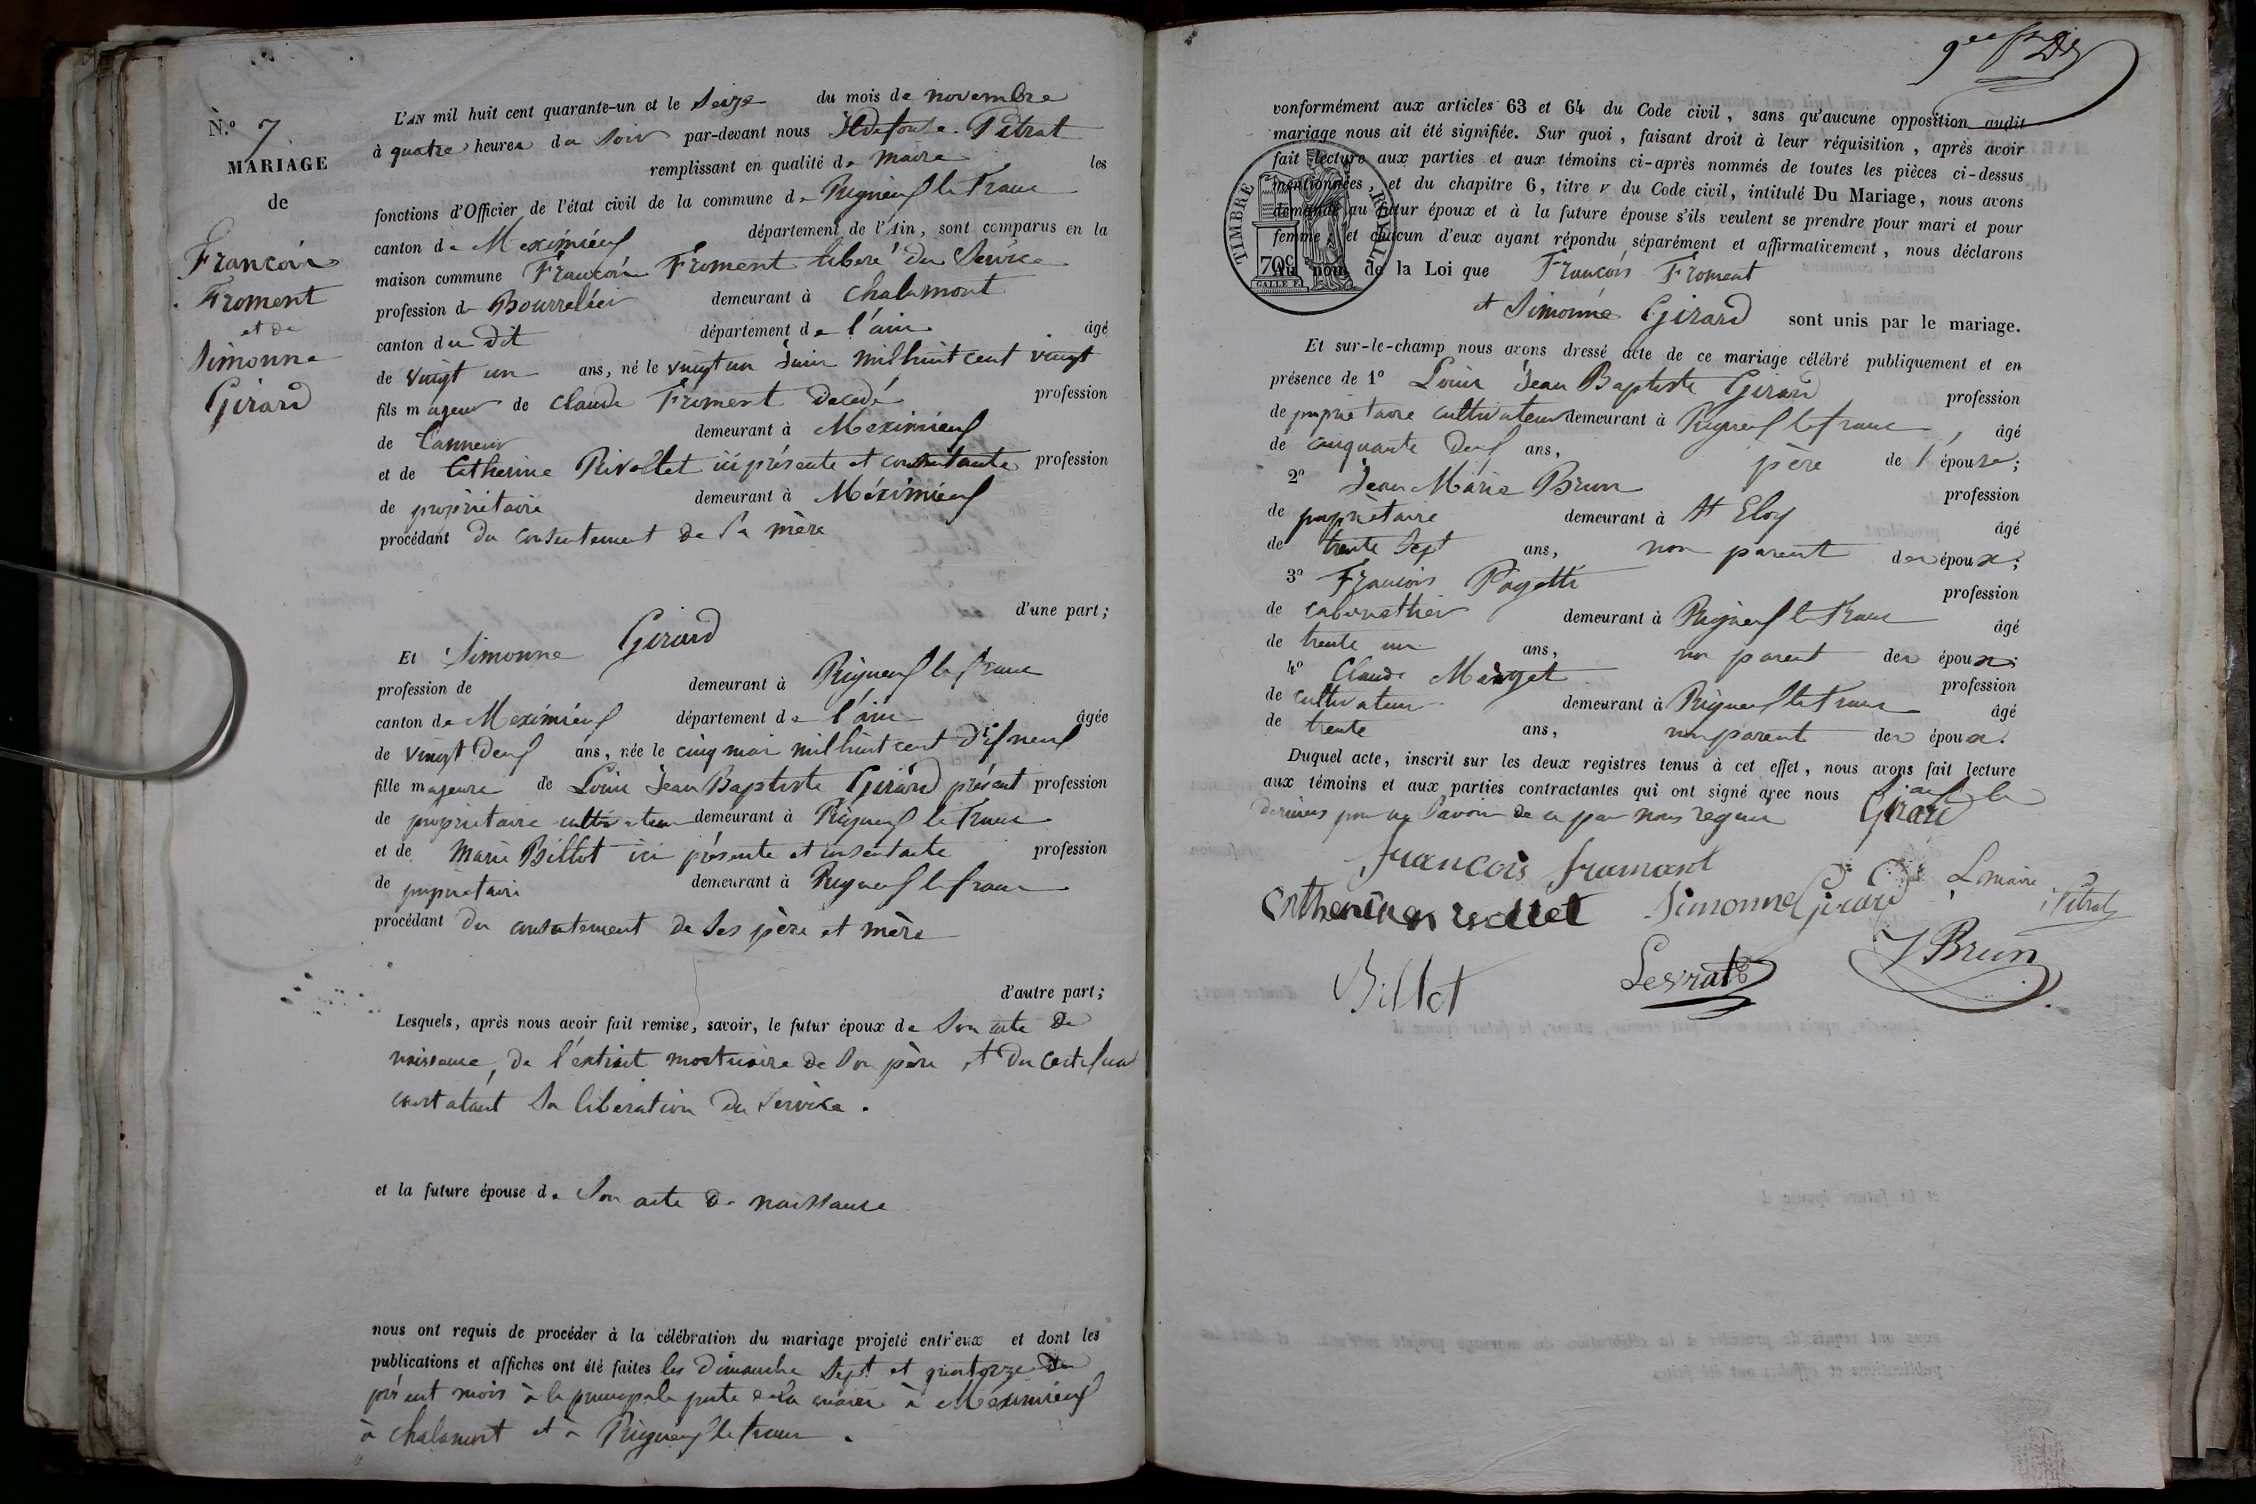 N.º 7
MARIAGE
de
François
Froment
et de
Simonne
Girard
L'AN mil huit cent quarante-un et le Seize du mois de novembre
à quatre heures du Soir par-devant nous Ildefonse Pitrat
remplissant en qualité de maire les
fonctions d'Officier de l'état civil de la commune de Rigneux le franc
canton de Meximieux département de l'Ain, sont comparus en la
maison commune François Froment liberé du Service
profession de Bourrelier demeurant à Chalamont
canton du dit département de l'ain âgé
de vingt un ans, né le vingt un Juin mil huit cent vingt
fils majeur de Claude Froment décedé profession
de Tanneur demeurant à Méximieux
et de Catherine Rivollet ici présente et consentante profession
de propriétaire demeurant à Méximieux
procédant du consentement de Sa mère
d'une part;
Et Simonne Girard
profession de demeurant à Rigneux le franc
canton de Meximieux département de l'ain âgée
de vingt deux ans, née le cinq mai mil huit cent dix neuf
fille majeure de Louis Jean Baptiste Girard présent profession
de propriétaire cultivateur demeurant à Rigneux le franc
et de Marie Billot ici présente et consentante profession
de propriétaire demeurant à Rigneux le franc
procédant du consentement de Ses père et mère
d'autre part;
Lesquels, après nous avoir fait remise, savoir, le futur époux de Son acte de
naissance, de l'extrait mortuaire de Son père, et du certificat
constatant Sa liberation du Service.
et la future épouse de Son acte de naissance
nous ont requis de procéder à la célébration du mariage projeté entr'eux et dont les
publications et affiches ont été faites les Dimanche Sept et quatorze du
présent mois à la principale porte de la mairie à Meximieux
à Chalamont et à Rigneux le franc.
conformément aux articles 63 et 64 du Code civil, sans qu'aucune opposition audit
mariage nous ait été signifiée. Sur quoi, faisant droit à leur réquisition, après avoir
fait lecture aux parties et aux témoins ci-après nommés de toutes les pièces ci-dessus
mentionnées, et du chapitre 6, titre v du Code civil, intitulé Du Mariage, nous avons
demandé au futur époux et à la future épouse s'ils veulent se prendre pour mari et pour
femme, et chacun d'eux ayant répondu séparément et affirmativement, nous déclarons
au nom de la Loi que François Froment
et Simonne Girard sont unis par le mariage.
TIMBRE ROYAL
70c
Et sur-le-champ nous avons dressé acte de ce mariage célébré publiquement et en
présence de 1º Louis Jean Baptiste Girard profession
de propriétaire cultivateur demeurant à Rigneux le franc, âgé
de cinquante deux ans, père de l'épouse;
2º Jean Marie Brun profession
de propriétaire demeurant à St Eloy âgé
de trente Sept ans, non parent des époux;
3º François Pagetti profession
de cabaretier demeurant à Rigneux le franc âgé
de trente un ans, non parent des époux;
4º Claude profession
de cultivateur demeurant à Rigneux le franc âgé
de trente ans, non parent des époux.
Duquel acte, inscrit sur les deux registres tenus à cet effet, nous avons fait lecture
aux témoins et aux parties contractantes qui ont signé avec nous
derniers pour ne Savoir de ce par nous requis Girard
françois framant
Simonne Girard
Le maire
Pitrat
Billot
Levrat
J Brun